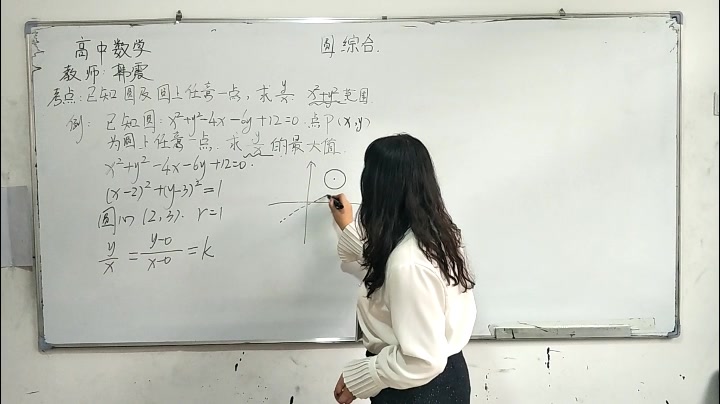 高中数学
圆综合.
教师:韩震
考点:已知圆及圆上任意一点,求 y/x x²+y²范围.
例: 已知圆:x²+y²-4x-6y+12=0.点P(x,y)
为圆上任意一点.求 y/x 的最大值.
x²+y²-4x-6y+12=0.
(x-2)²+(y-3)²=1
圆心(2,3). r=1
y/x = y-0/x-0 = k